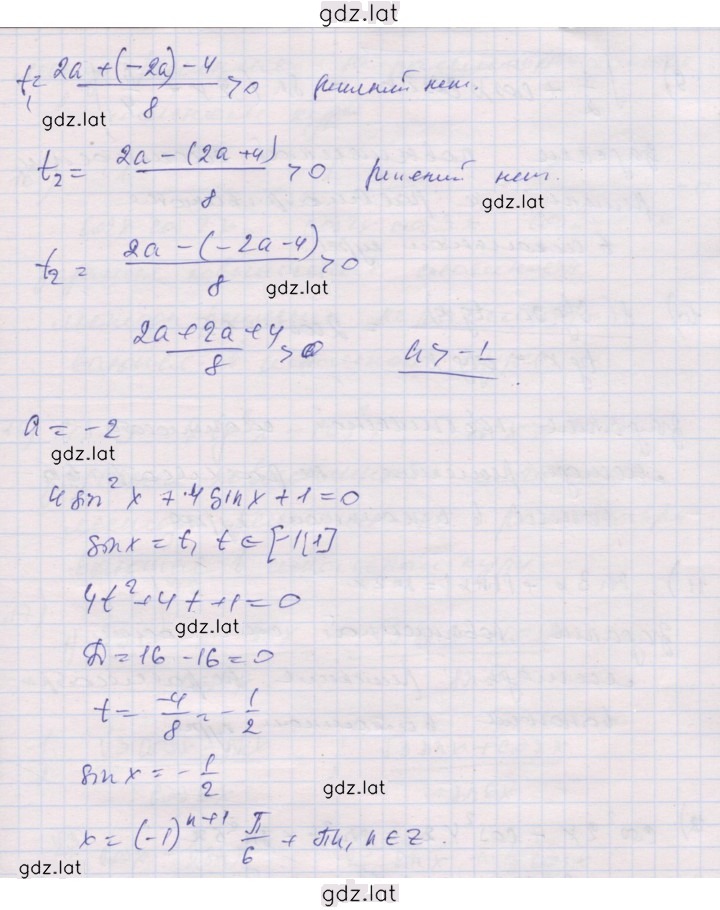 gdz.lat
t₁ = (2a + (-2a) - 4)/8 > 0 решений нет.
gdz.lat
t₂ = (2a - (2a + 4))/8 > 0 решений нет.
gdz.lat
t₂ = (2a - (-2a - 4))/8 > 0
gdz.lat
(2a + 2a + 4)/8 > 0 a > -1.
a = -2
gdz.lat
4 sin² x + 4 sin x + 1 = 0
sin x = t, t ∈ [-1; 1]
4t² + 4t + 1 = 0
gdz.lat
D = 16 - 16 = 0
t = -4/8 = -1/2
sin x = -1/2
gdz.lat
x = (-1)ⁿ⁺¹ π/6 + πn, n ∈ Z.
gdz.lat
gdz.lat